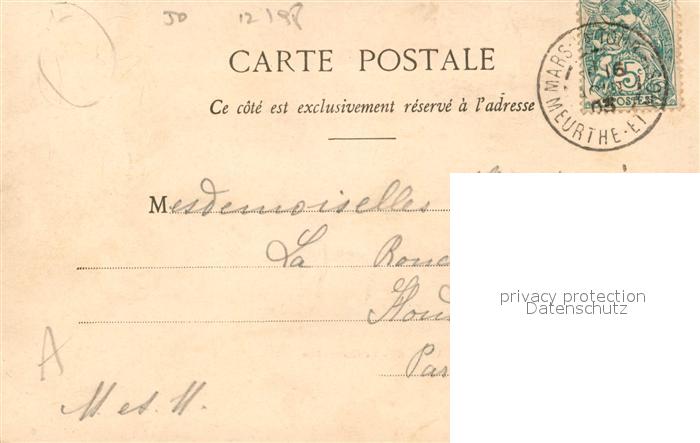 JO 12/98
CARTE POSTALE
Ce côté est exclusivement réservé à l'adresse
MARS-
16
03
MEURTHE-ET-
5
POSTES
Mesdemoiselles
La
privacy protection
Datenschutz
A
M et M.